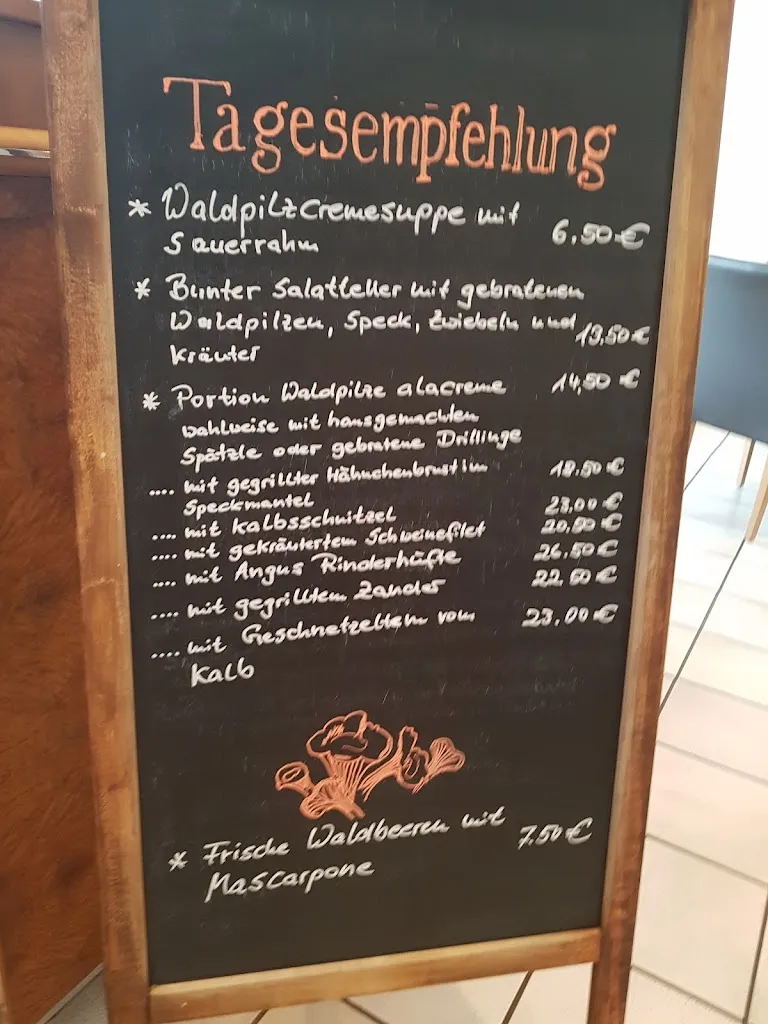 Tagesempfehlung
* Waldpilzcremesuppe mit 6.50 €
Sauerrahm
* Bunter Salatteller mit gebratenen
Waldpilzen, Speck, Zwiebeln und 13,50 €
Kräuter
* Portion Waldpilze alacreme 14,50 €
wahlweise mit hausgemachten
Spätzle oder gebratene Drillinge
.... mit gegrillter Hähnchenbrust im 18.50 €
Speckmantel
.... mit Kalbsschnitzel 23.00 €
.... mit gekräutertem Schweinefilet 20,50 €
.... mit Angus Rinderhüfte 26.50 €
.... mit gegrilltem Zander 22 50 €
.... mit Geschnetzeltem vom 23.00 €
Kalb
* Frische Waldbeeren mit 7.50 €
Mascarpone